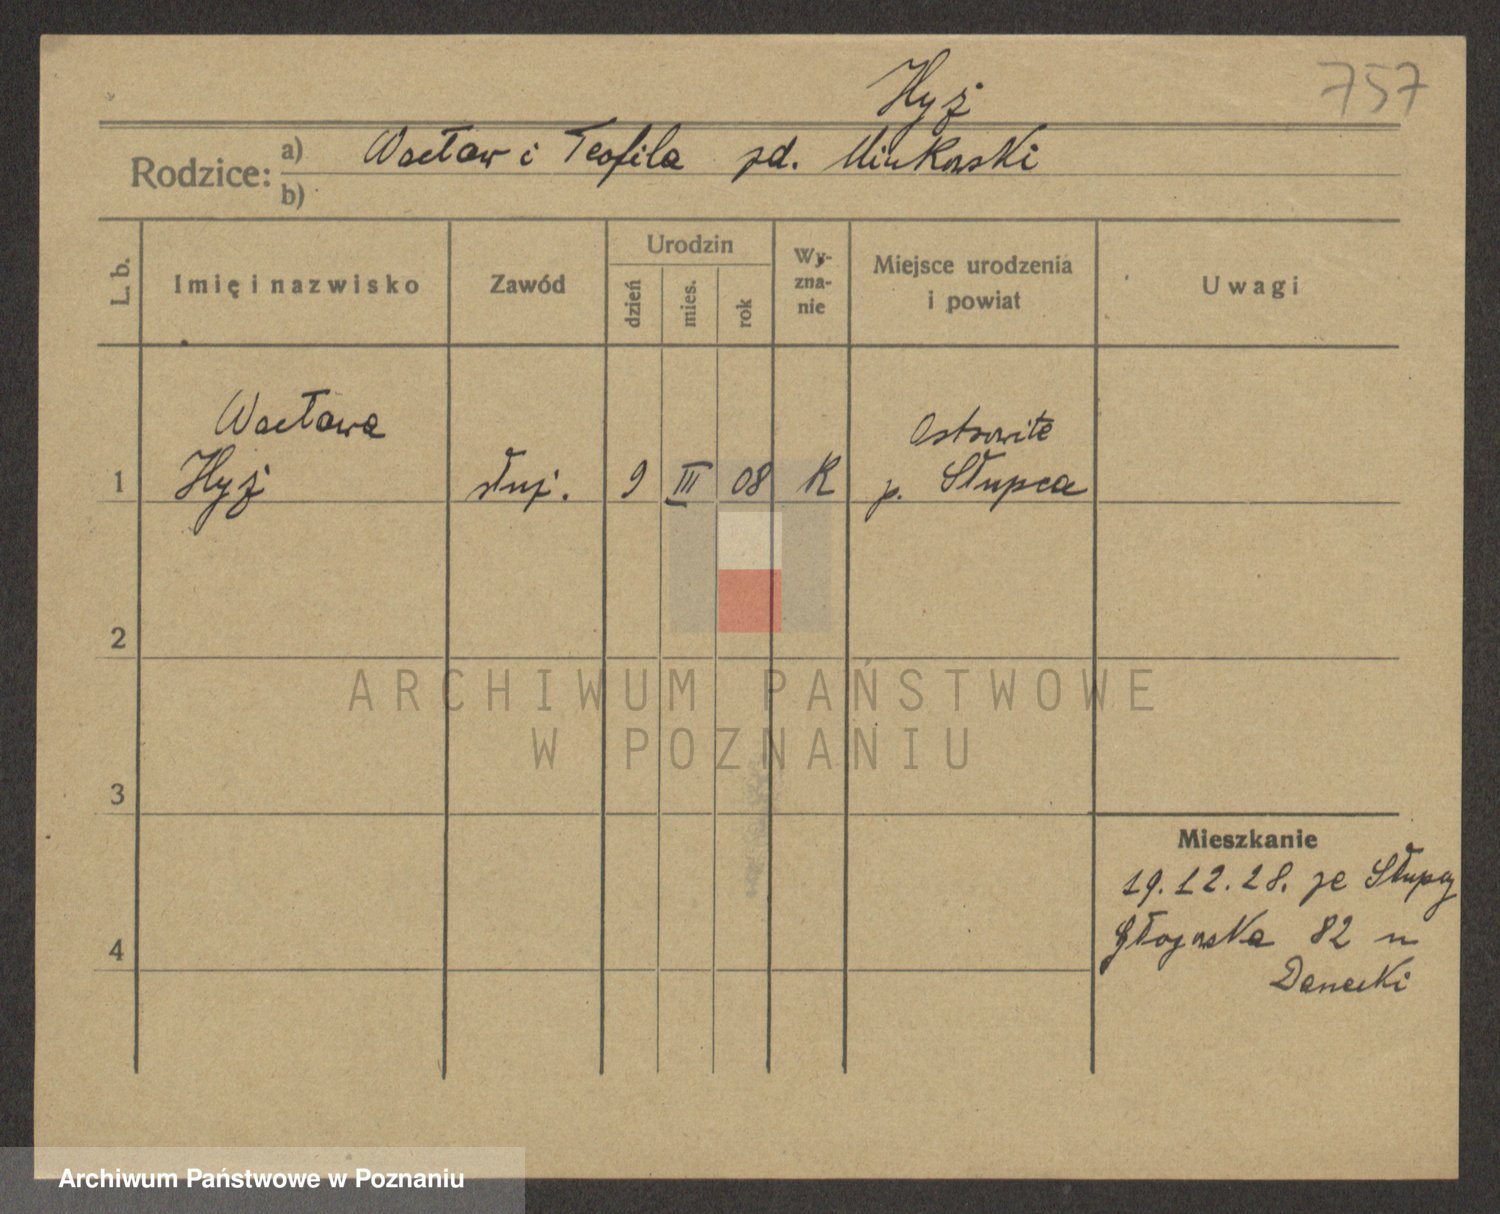 Hyż 757
Rodzice: a) Wacław i Teofila zd. Minkowski
b)
L. b. Imię i nazwisko Zawód Urodzin dzień mies. rok Wy-zna-nie Miejsce urodzenia i powiat Uwagi
Wacława Ostrowite
1 Hyż służ. 9 III 08 K p. Słupca
2
ARCHIWUM PAŃSTWOWE
W POZNANIU
3
Mieszkanie
19.12.28. ze Słupcy
Głogowska 82 u
4 Danecki
Archiwum Państwowe w Poznaniu